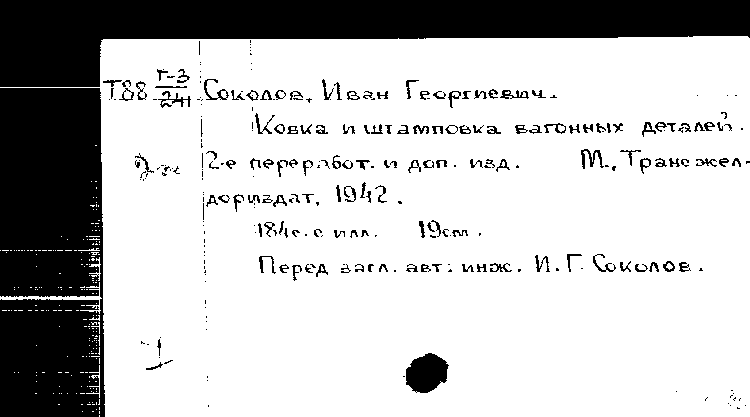 Т88 Г-3/241 Соколов, Иван Георгиевич.
Ковка и штамповка вагонных деталей.
2-е переработ. и доп. изд. М., Трансжел-
дориздат, 1942.
184с. с илл. 19см.
Перед загл. авт: инж. И.Г. Соколов.